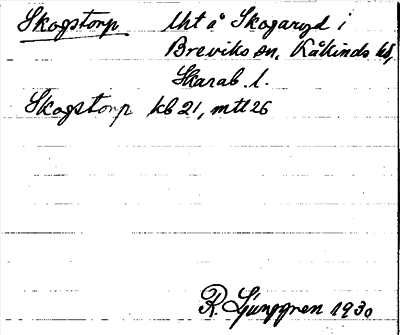 Skogstorp lht å Skogaryd i
Breviks sn, Kåkinds hd,
Skarab. l.
Skogstorp kb 21, mtl 26
R. Ljunggren 1930